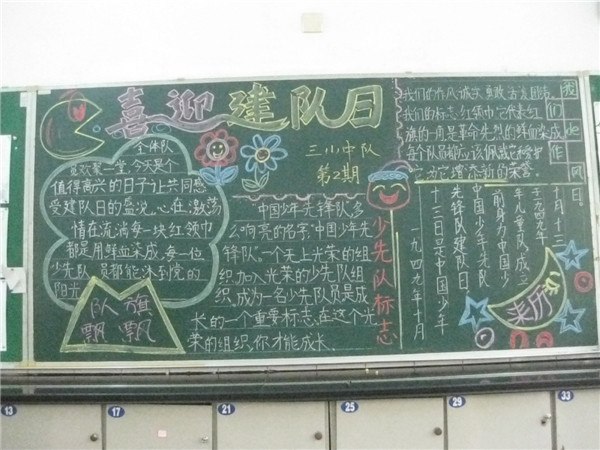 喜迎建队日
三八中队
第2期
全体队
欢聚一堂,今天是个
值得高兴的日子,让共同感
受建队日的盛况,心在激荡
情在流淌每一块红领巾
都是用鲜血染成,每一位
少先队员都能沐到党的
阳光
队旗
飘飘
中国少年先锋队,多
么响亮的名字,中国少年先
锋队。一个无上光荣的组
织,加入光荣的少先队组
织,成为一名少先队员是成
长的一个重要标志,在这个光
荣的组织,你才能成长。
少先队标志
我们的作风
我们的作风:诚实勇敢活泼团结
我们的标志:红领巾,它代表红
旗的一角是革命先烈的鲜血染成
每个队员都应该佩戴它和爱护
它,为它增添新的荣誉
十月十三
于一九四九
年儿童队成立
前身为中国少
中国少年先队
先锋队建队日。
十三日是中国少年
一九四九年十月
来历
13
17
21
25
29
33